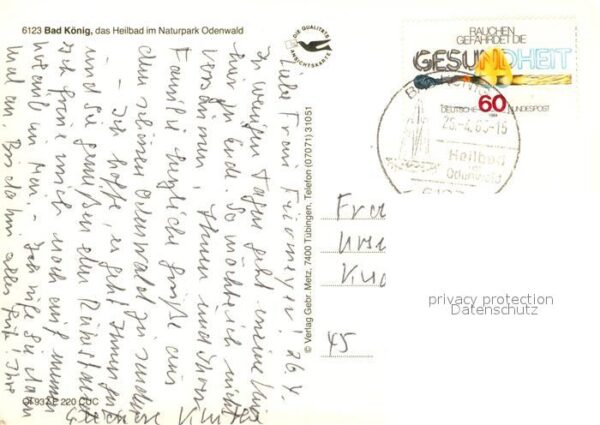 6123 Bad König, das Heilbad im Naturpark Odenwald
DIE QUALITÄTS
ANSICHTSKARTE
RAUCHEN
GEFÄHRDET DIE
GESUNDHEIT
DEUTSCHE BUNDESPOST
60
Heilbad
Odenwald
6123
© Verlag Gebr. Metz, 7400 Tübingen, Telefon (07071) 31051
Liebe Frau 26.4.
In wenigen Tagen geht meine Kur
hier zu Ende. So möchte ich nicht
versäumen, Ihnen und Ihrer
Familie herzliche Grüße aus
dem schönen Odenwald zu senden
- Ich hoffe, es geht Ihnen gut
und Sie genießen den
Ich freue mich noch auf meinen
Urlaub im Mai. - Ich rufe Sie dann
mal an. Bis dahin alles Gute! Ihre
Fra
45
privacy protection
Datenschutz
220 CUC